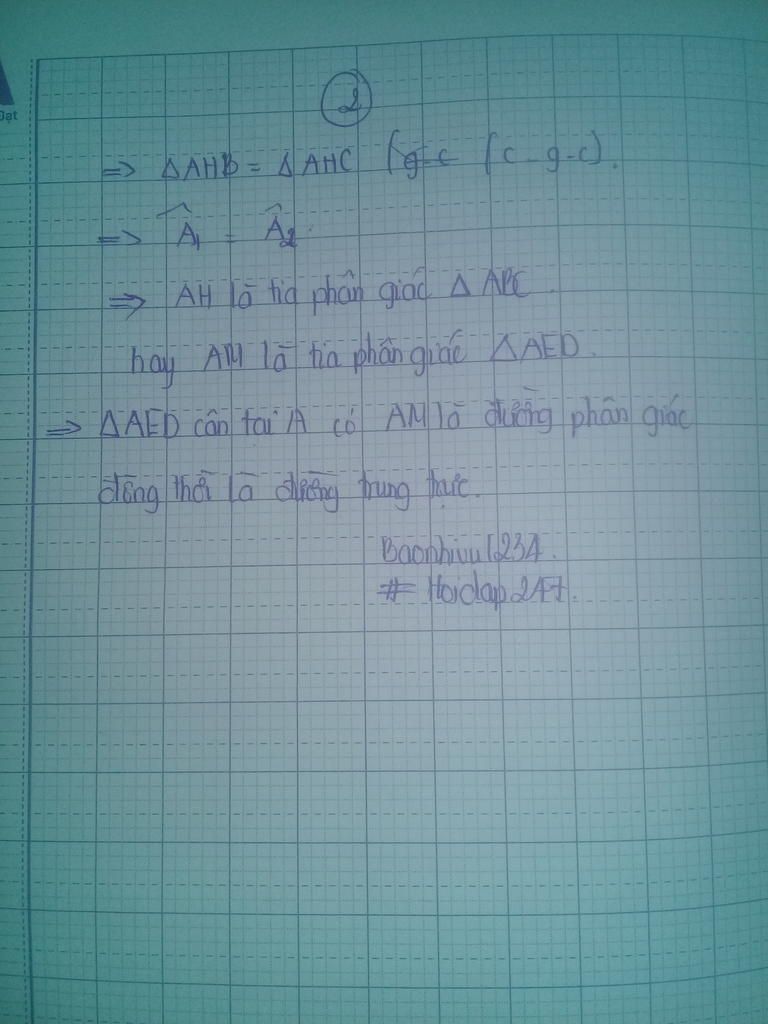 Đạt
2
=> ΔAHB = ΔAHC (g-c (c-g-c).
=> Â1 = Â2.
=> AH là tia phân giác ΔABC.
hay AM là tia phân giác ΔAED.
=> ΔAED cân tại A có AM là đường phân giác
đồng thời là đường trung trực.
Baonhivu1234.
# Hoidap247.